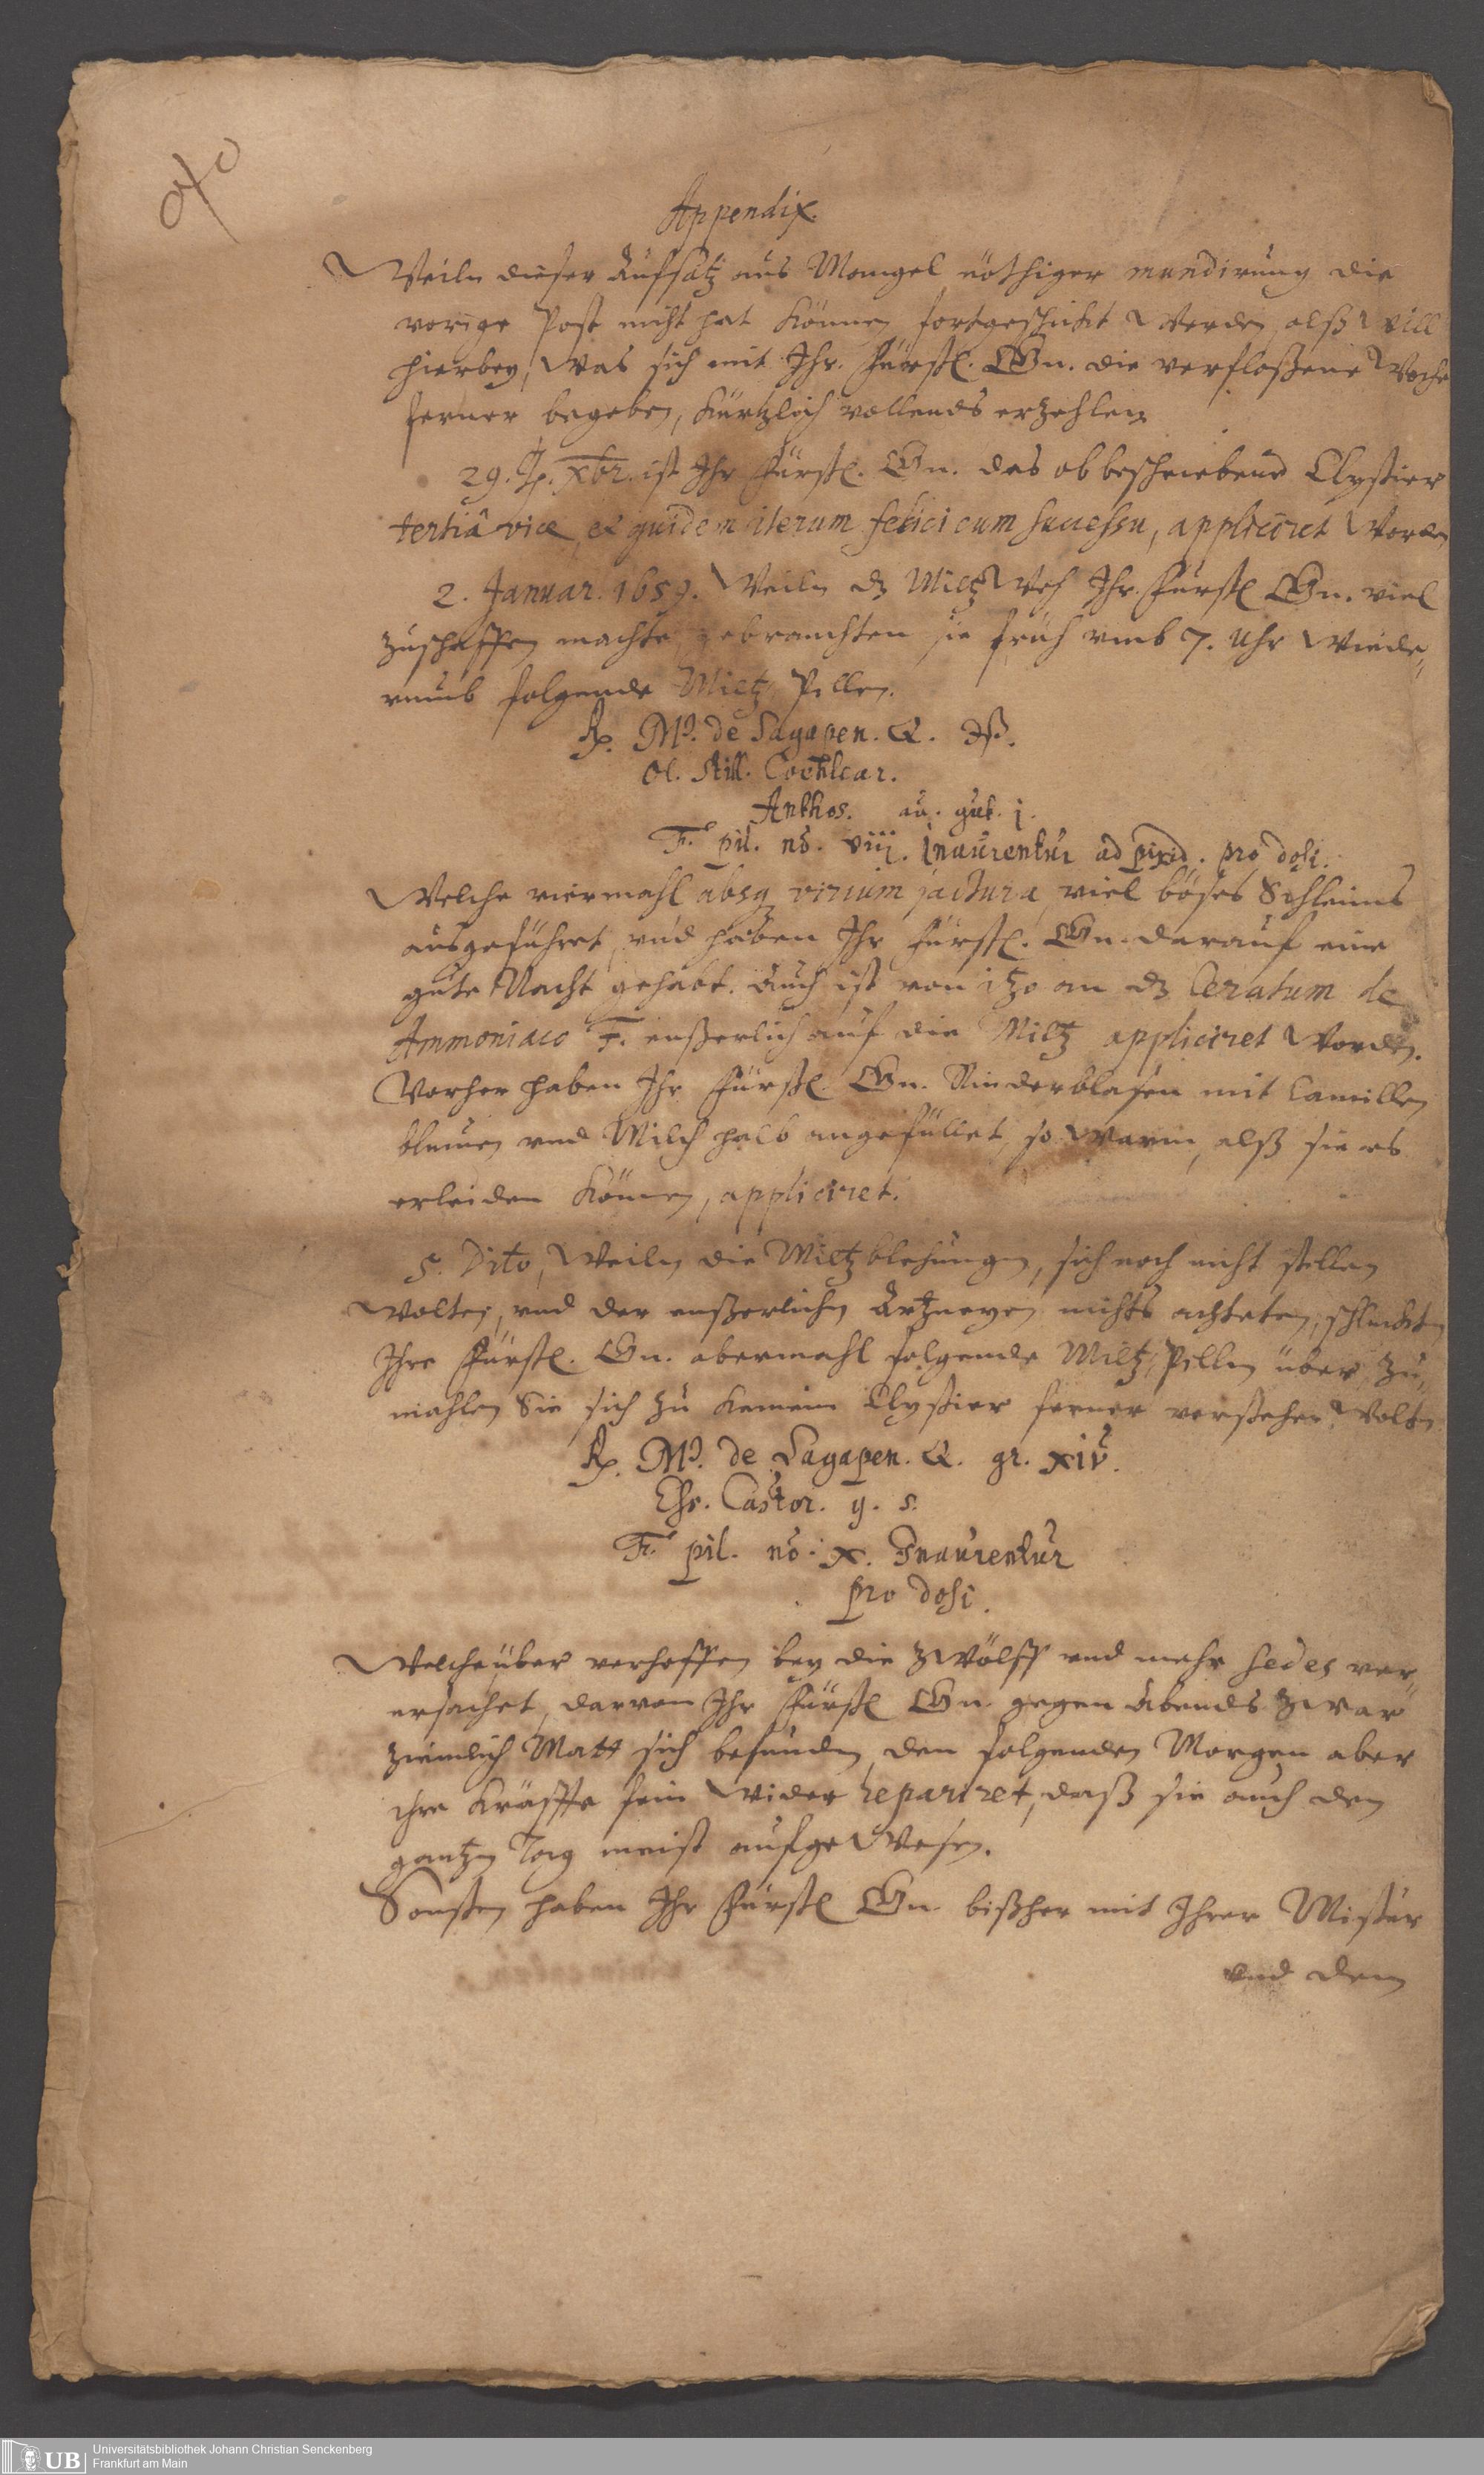 Appendix.
Weiln dieser Auffsatz aus Mangel nöthiger mundirung die
vorige Post nicht hat können fortgeschickt werden, alß will
hierbey, was sich mit Ihr. Fürstl. Gn. die verfloßene Woche
ferner begeben, kürtzlich vollends erzehlen.
29. Xbr. ist Ihr Fürstl. Gn. das ob beschriebene Clystier
tertiâ vice, et quidem iterum felici cum successu, appliciret worden
2. Januar. 1659. Weiln dz Miltz Weh Ihr. Fürstl Gn. viel
zuschaffen machte, gebrauchten sie früh umb 7. Uhr wiede„
rumb folgende Miltz Pillen.
Rp. Mß. de Sagapen. Q. ℈ß.
Ol. still. Cochlear.
Anthos. aa. gut. j.
F. pil. no. viij. Inaurentur ad pixid. pro dosi.
Welche viermahl absq virium jactura, viel böses Schleims
ausgeführet, und haben Ihr Fürstl. Gn. darauf eine
gute Nacht gehabt. Auch ist von itzo an dz Ceratum de
Ammoniaco F. eußerlich auf die Miltz appliciret worden.
Vorher haben Ihr Fürstl Gn. Rinderblasen mit Camillen
blumen und Milch halb angefüllet, so warm, alß sie es
erleiden können, appliciret.
5. Dito, Weiln die Miltzblehungen, sich noch nicht stellen
wolten, und der eußerlichen Artzneyen nichts achteten, schluckten
Ihre Fürstl. Gn. abermahl folgende Miltz Pillen über, zu„
mahlen Sie sich zu keinem Clystier ferner verstehen wolten
Rp. Mß. de Sagapen. Q. gr. xiv.
Ess. Castor. q. s.
F. pil. no. x. Inaurentur
pro dosi.
Welche über verhoffen bey die zwölff und mehr sedes ver„
ursachet, darvon Ihr Fürstl Gn. gegen Abends zwar
ziemlich Matt sich befunden, den folgenden Morgen aber
ihre Kräffte fein wider repariret, daß sie auch den
gantzen Tag meist aufgewesen.
Sonsten haben Ihr Fürstl Gn. bißher mit Ihrer Mixtur
und dem
UB
Universitätsbibliothek Johann Christian Senckenberg
Frankfurt am Main